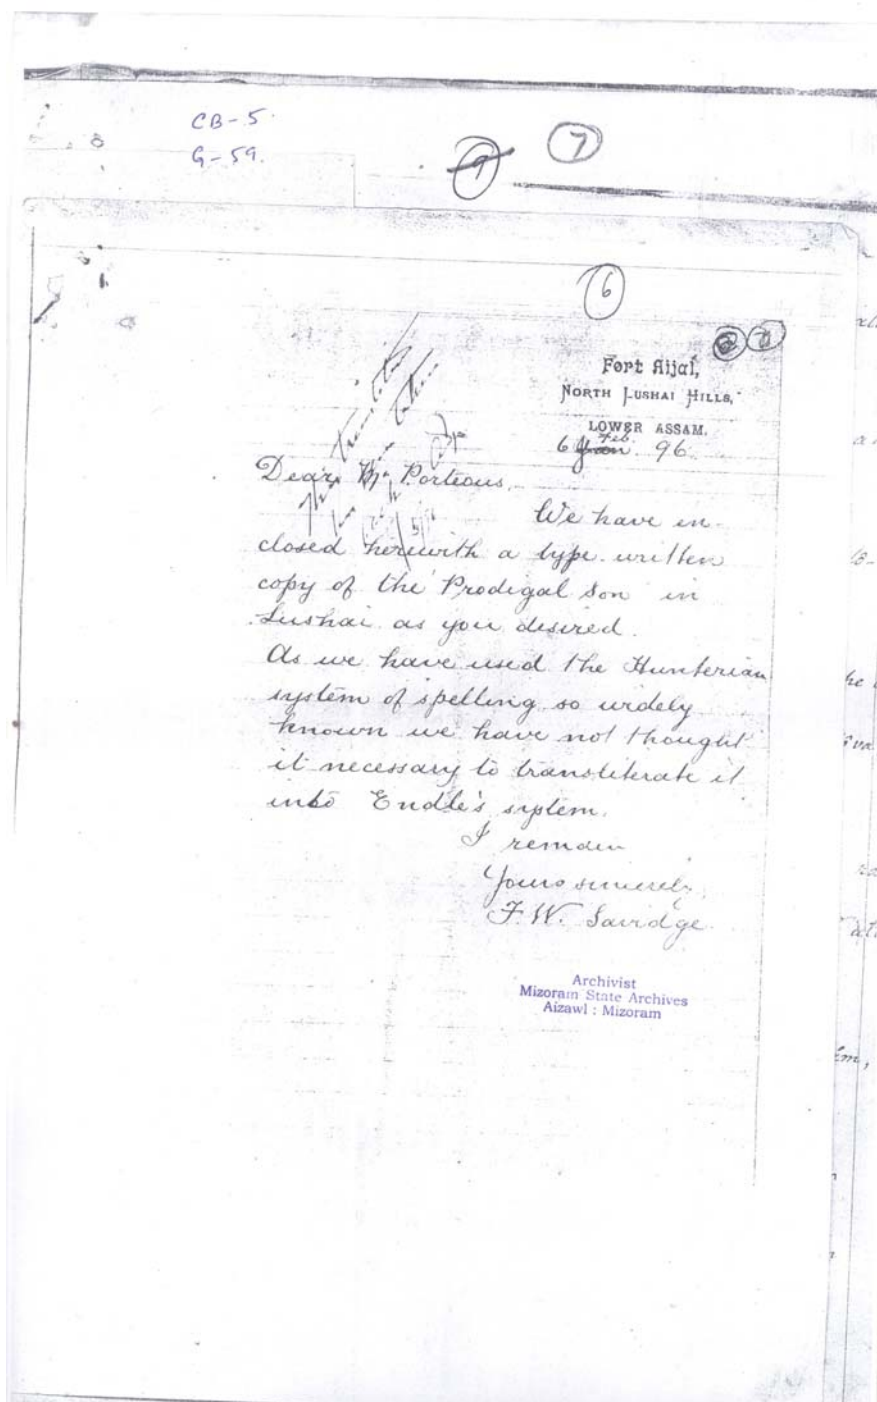 CB-5.
G-59.
9
7
6
Fort Aijal,
North Lushai Hills,
Lower Assam.
6 Jan. Feb. 96.
Dear Mr Porteous,
We have in-
closed herewith a type-written
copy of the Prodigal Son in
Lushai as you desired.
As we have used the Hunterian
system of spelling so widely
known we have not thought
it necessary to transliterate it
into Endle's system.
I remain
Yours sincerely,
F. W. Savidge.
Archivist
Mizoram State Archives
Aizawl : Mizoram